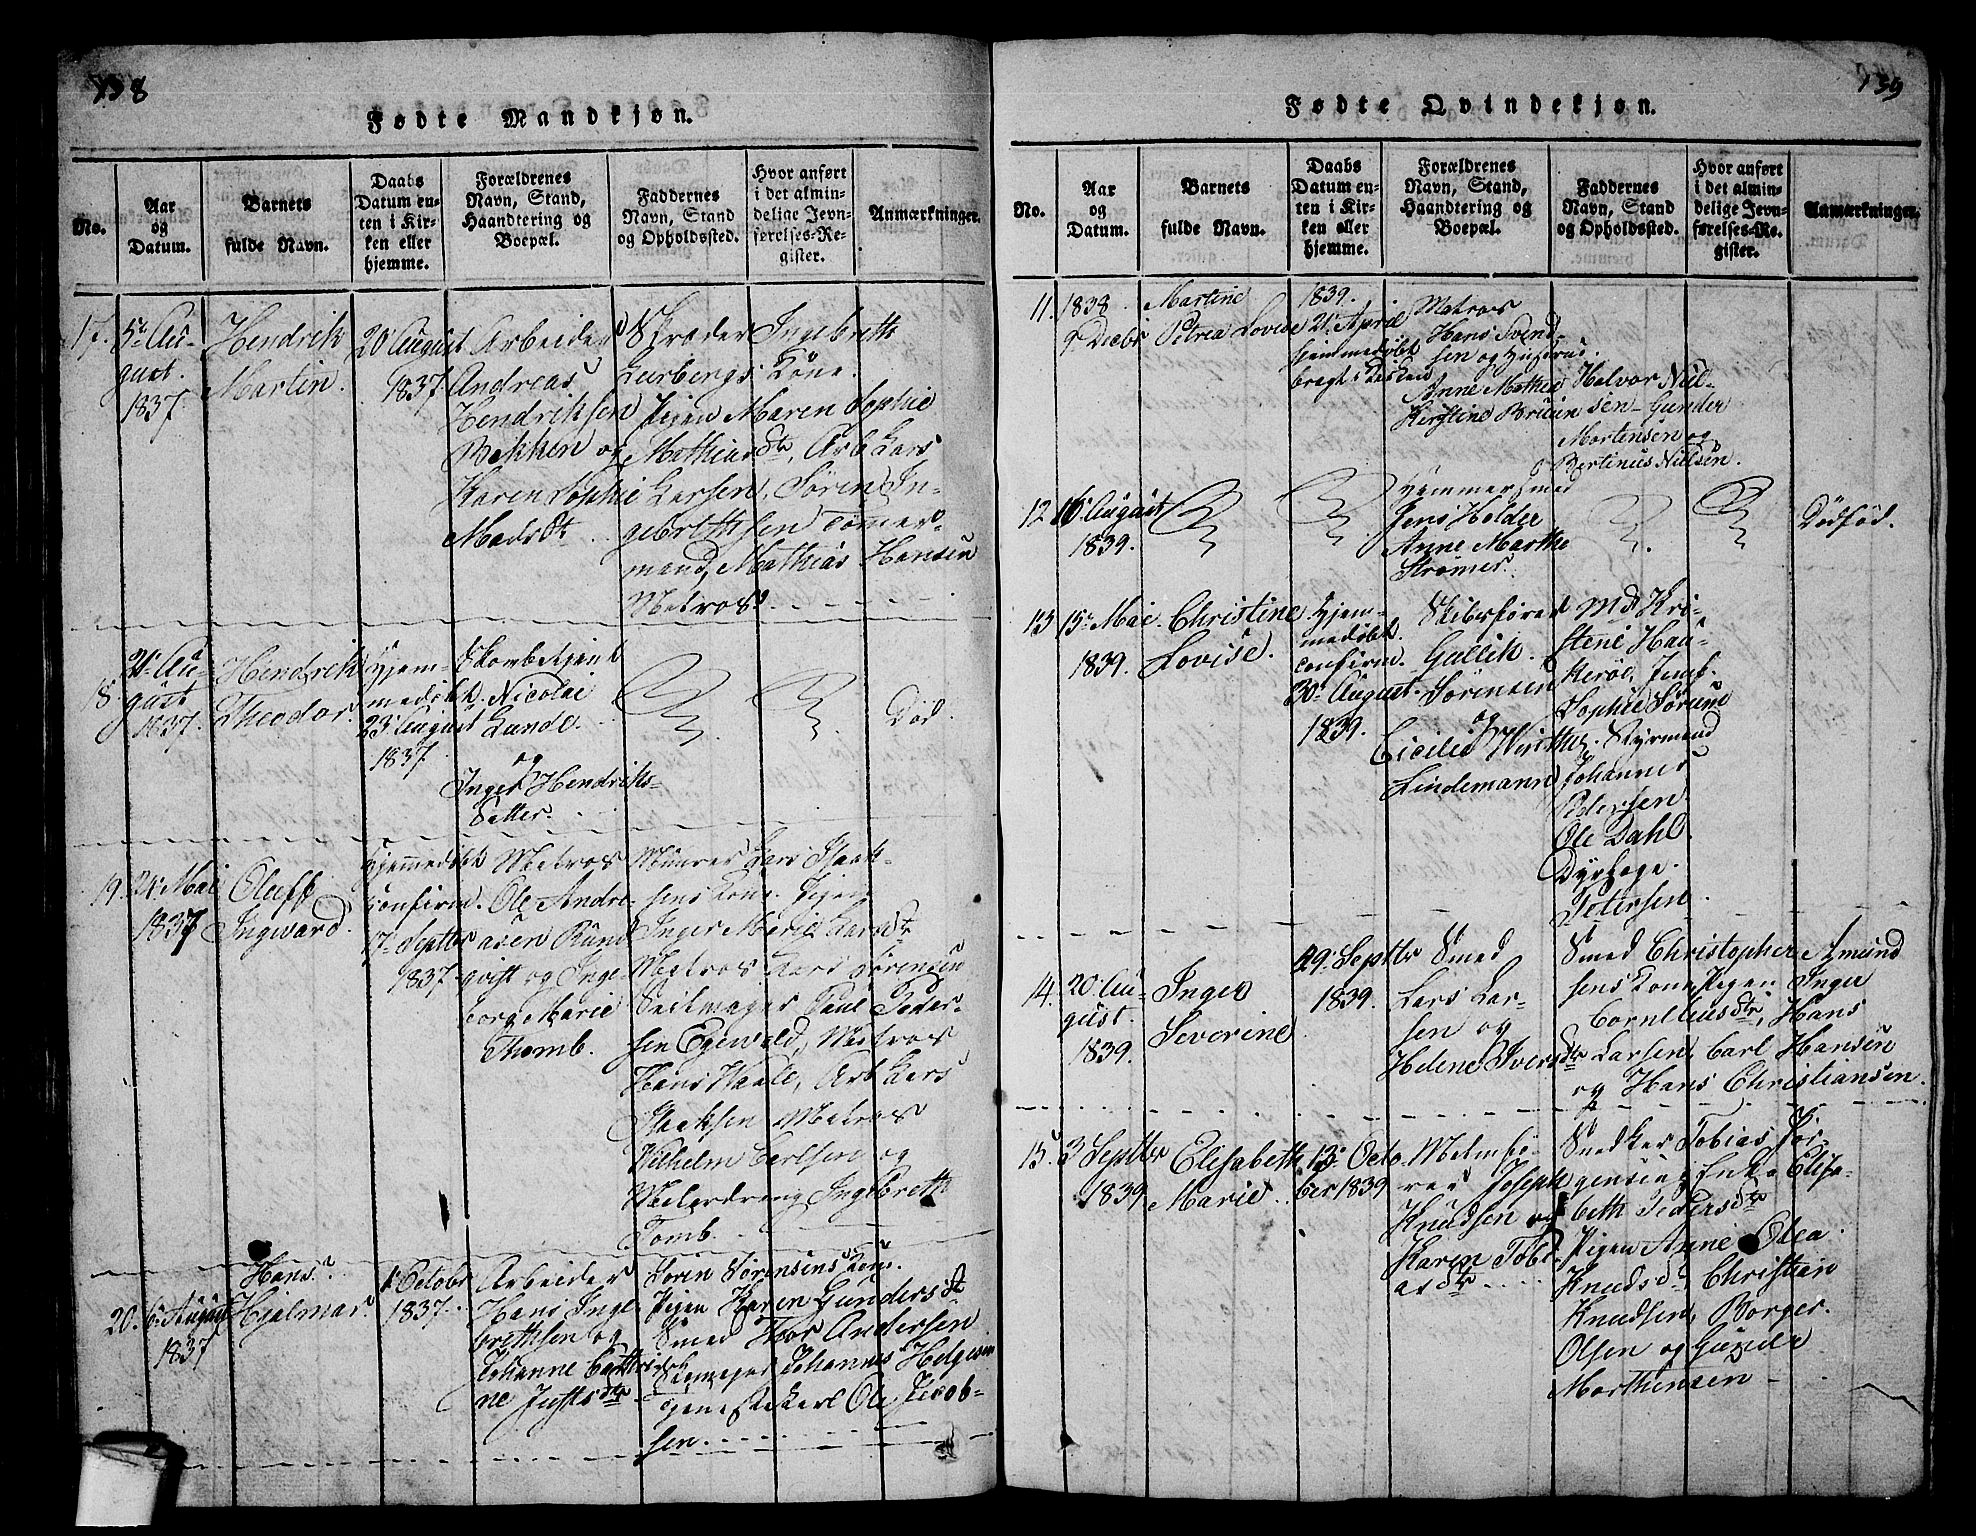 138
Fødte Mandkjøn.
No.
Aar
og
Datum.
Barnets
fulde Navn.
Daabs
Datum en-
ten i Kir-
ken eller
hjemme.
Forældrenes
Navn, Stand,
Haandtering og
Boepæl.
Faddernes
Navn, Stand
og Opholdssted.
Hvor anført
i det almin-
delige Jevn-
førelses-Re-
gister.
Anmærkninger.
17.
5te Au-
gust.
1837.
Hendrik
Martin.
20 August
1837
Arbeider
Andreas
Hendriksen
Bakken og
Karen Sophie
Madsdtr
Skræder Ingebreth
Lurbergs Kone.
Pigen Maren Sophie
Mathiasdtr, Arb Lars
Larsen, Søren In-
gebrethsen Tømer-
mand, Mathias Hansen
Matros
18
21 Au-
gust
1837.
Hendrik
Theodor.
Hjem-
medøbt
23 August
1837
Nicolai
Lunde.
og
Inger Hendriks-
Datter.
Død.
19.
21 Mai
1837
Oluff
Ingvard.
Hjemmedøbt
confirm.
17 Septbr
1837
Matros
Ole Andre-
asen Rund
qvist og Inge-
borg Marie
Thomb.
Murer Lars Isaak-
sens Kone. Pigen
Inger Marie Larsdtr
Matros Lars Sørensen
Seilmager Paul Peder-
sen Egevald, Matros
Hans Waale, Arb Lars
Isacksen Matros
Wilhelm Carlsen og
Malerdreng Ingebreth
Tomb.
20.
6 August
1837
Hans
Hjalmar.
1 Octobr
1837.
Arbeider
Hans Inge
brethsen og
Johanne Cathri
ne Justsdtr
Søren Sørensens Kone.
Pigen Karen Gundersdt
Smed Thor Andersen
Johannes Helgesen
Ole Jacob-
sen.
139
Fødte Qvindekjøn.
No.
Aar
og
Datum.
Barnets
fulde Navn.
Daabs
Datum en-
ten i Kir-
ken eller
hjemme.
Forældrenes
Navn, Stand,
Haandtering og
Boepæl.
Faddernes
Navn, Stand
og Opholdssted.
Hvor anført
i det almin-
delige Jevn-
førelses-Re-
gister.
Anmærkninger.
11.
1838.
9 Decbr
Martine
Petrea Lovise
1839.
21 April
hjemmedøbt
bragt i Kirken
Matros
Hans Svend
sen og Hustrue.
Anne Mathea
Kerstine Bruun
Halvor Niel-
sen - Gunder
Mortensen og
Bertinus Nielsen.
12
16 August
1839.
Hammersmed
Jens Holder
Anne Marthe
Strømer.
Dødfød.
13
15 Mai
1839.
Christine
Lovise.
Hjem-
medøbt.
confirm.
30 August
1839.
Skibsfører
Gullik
Sørensen
og
Cicilia
Lindemann
Md Kri-
stene Hau-
kerøe, Jmf.
Sophie Sørum
Styrmand
Johannes
Pedersen
Ole Dahl
Dyrhoge
Petersen
14.
20 Au-
gust.
1839.
Inger
Severine
29 Septbr
1839.
Smed
Lars Lar-
sen og
Helene Iversdtr
Smed Christopher Amund
sens Kone Pigen Inger
Corneliusdtr, Hans
Larsen, Carl Hansen
og Hans Christiansen.
15.
3 Septbr
1839
Elisabeth
Marie
13 Octo
ber 1839
Joseph
Knudsen og
Karen Tobi
asdtr
Snedker Tobias Jør-
gensens Enke Elisa-
beth Pedersdtr
Pigen Anne Olea
Knudsdtr Christian
Knudsen, Borger
Olsen og Gunder
Morthensen